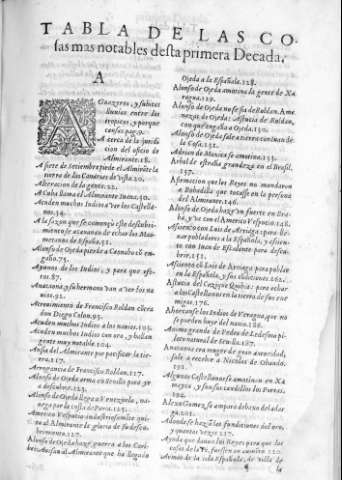 TABLA DE LAS CO
sas mas notables desta primera Decada.
A
Guazeros, y subitas
lluvias entre dos
tropicos, y porque
causas pag. 9.
Acerca de la juridi
cion del oficio de
Almirante. 18.
A siete de Setiembre pierde el Almirãte la
tierra de las Canarias de vista 20.
Alteracion de la gente. 22.
A Cuba llama el Almirante Iuana. 30.
Acuden muchos Indios a ver los Castella-
nos. 34.
A la sazon que se començò este descubri-
miento se acavaron de echar los Mo
ros de España. 51.
Alonso de Ojeda prende a Caonabo cõ en-
gaño. 75.
Ayunos de los Indios, y para que efe-
tos. 87.
Anacaona, y su hermano van a ver los na
vios. 92.
Atrevimiento de Francisco Roldan contra
don Diego Colon. 93.
Acuden muchos Indios a los navios. 103.
Acuden muchos Indios con oro, y hallan
gente muy notable. 104.
Ansia del Almirante por pacificar la tie-
rra. 117.
Arrogancia de Francisco Roldan. 117.
Alonso de Ojeda arma en Sevilla para yr
a descubrir. 125.
Alonso de Ojeda llega a Veneçuela, na
vega por la costa de Paria. 125.
Americo Vespucio
to al Almirante la gloria de su descu-
brimiento. 127.
Alonso de Ojeda haze guerra a los Cari-
bes. Avisan al Almirante que ha llegado
Ojeda a la Española. 128.
Alonso de Ojeda amotina la gente de Xa
ragua. 129.
Alonso de Ojeda no se fia de Roldan. Ame
nazas de Ojeda: Astucia de Roldan,
con que engaña a Ojeda. 130.
Alonso de Ojeda sale a tierra con tra
la Costa. 131.
Adrian de Moxica se amotina. 133.
Arbol de estraña grandeza en el Brasil.
137.
Afirmacion que los Reyes no mandaron
a Bobadilla que tocasse en la persona
del Almirante. 146.
Alonso de Ojeda haze un fuerte en Ura-
bà, y va con el Americo Vespucio. 148.
Assiento con Luis de Arriaga para lle-
var pobladores a la Española, y assien-
to con Iuan de Escalante para descu-
brir. 151.
Assiento cõ Luis de Arriaga para poblar
en la Española, y sus condiciones. 262.
Astucia del Cazique Quibia: para echar
a los Castellanos en la tierra de sus ene
migos. 176.
Ahorcanse los Indios de Veragua, que no
se pueden huyr del navio. 186.
Animo grande de Pedro de Ledesma pilo
to natural de Sevilla. 187.
Anacaona con muger de gran autoridad,
sale a recebir a Nicolas de Obando.
191.
Algunos Castellanos se amotinan en Xa
mayca, y son sus caudillos los Porras.
192.
Alexo Gomez, se ampara debaxo del adar
ga. 201.
Adonde se hazia las fundiciones del oro,
y quantas vezes. 217.
Ayuda que davan los Reyes para que las
cosas de la Fè, fuessen en aumento. 220.
Armas de la isla Española, de villa de